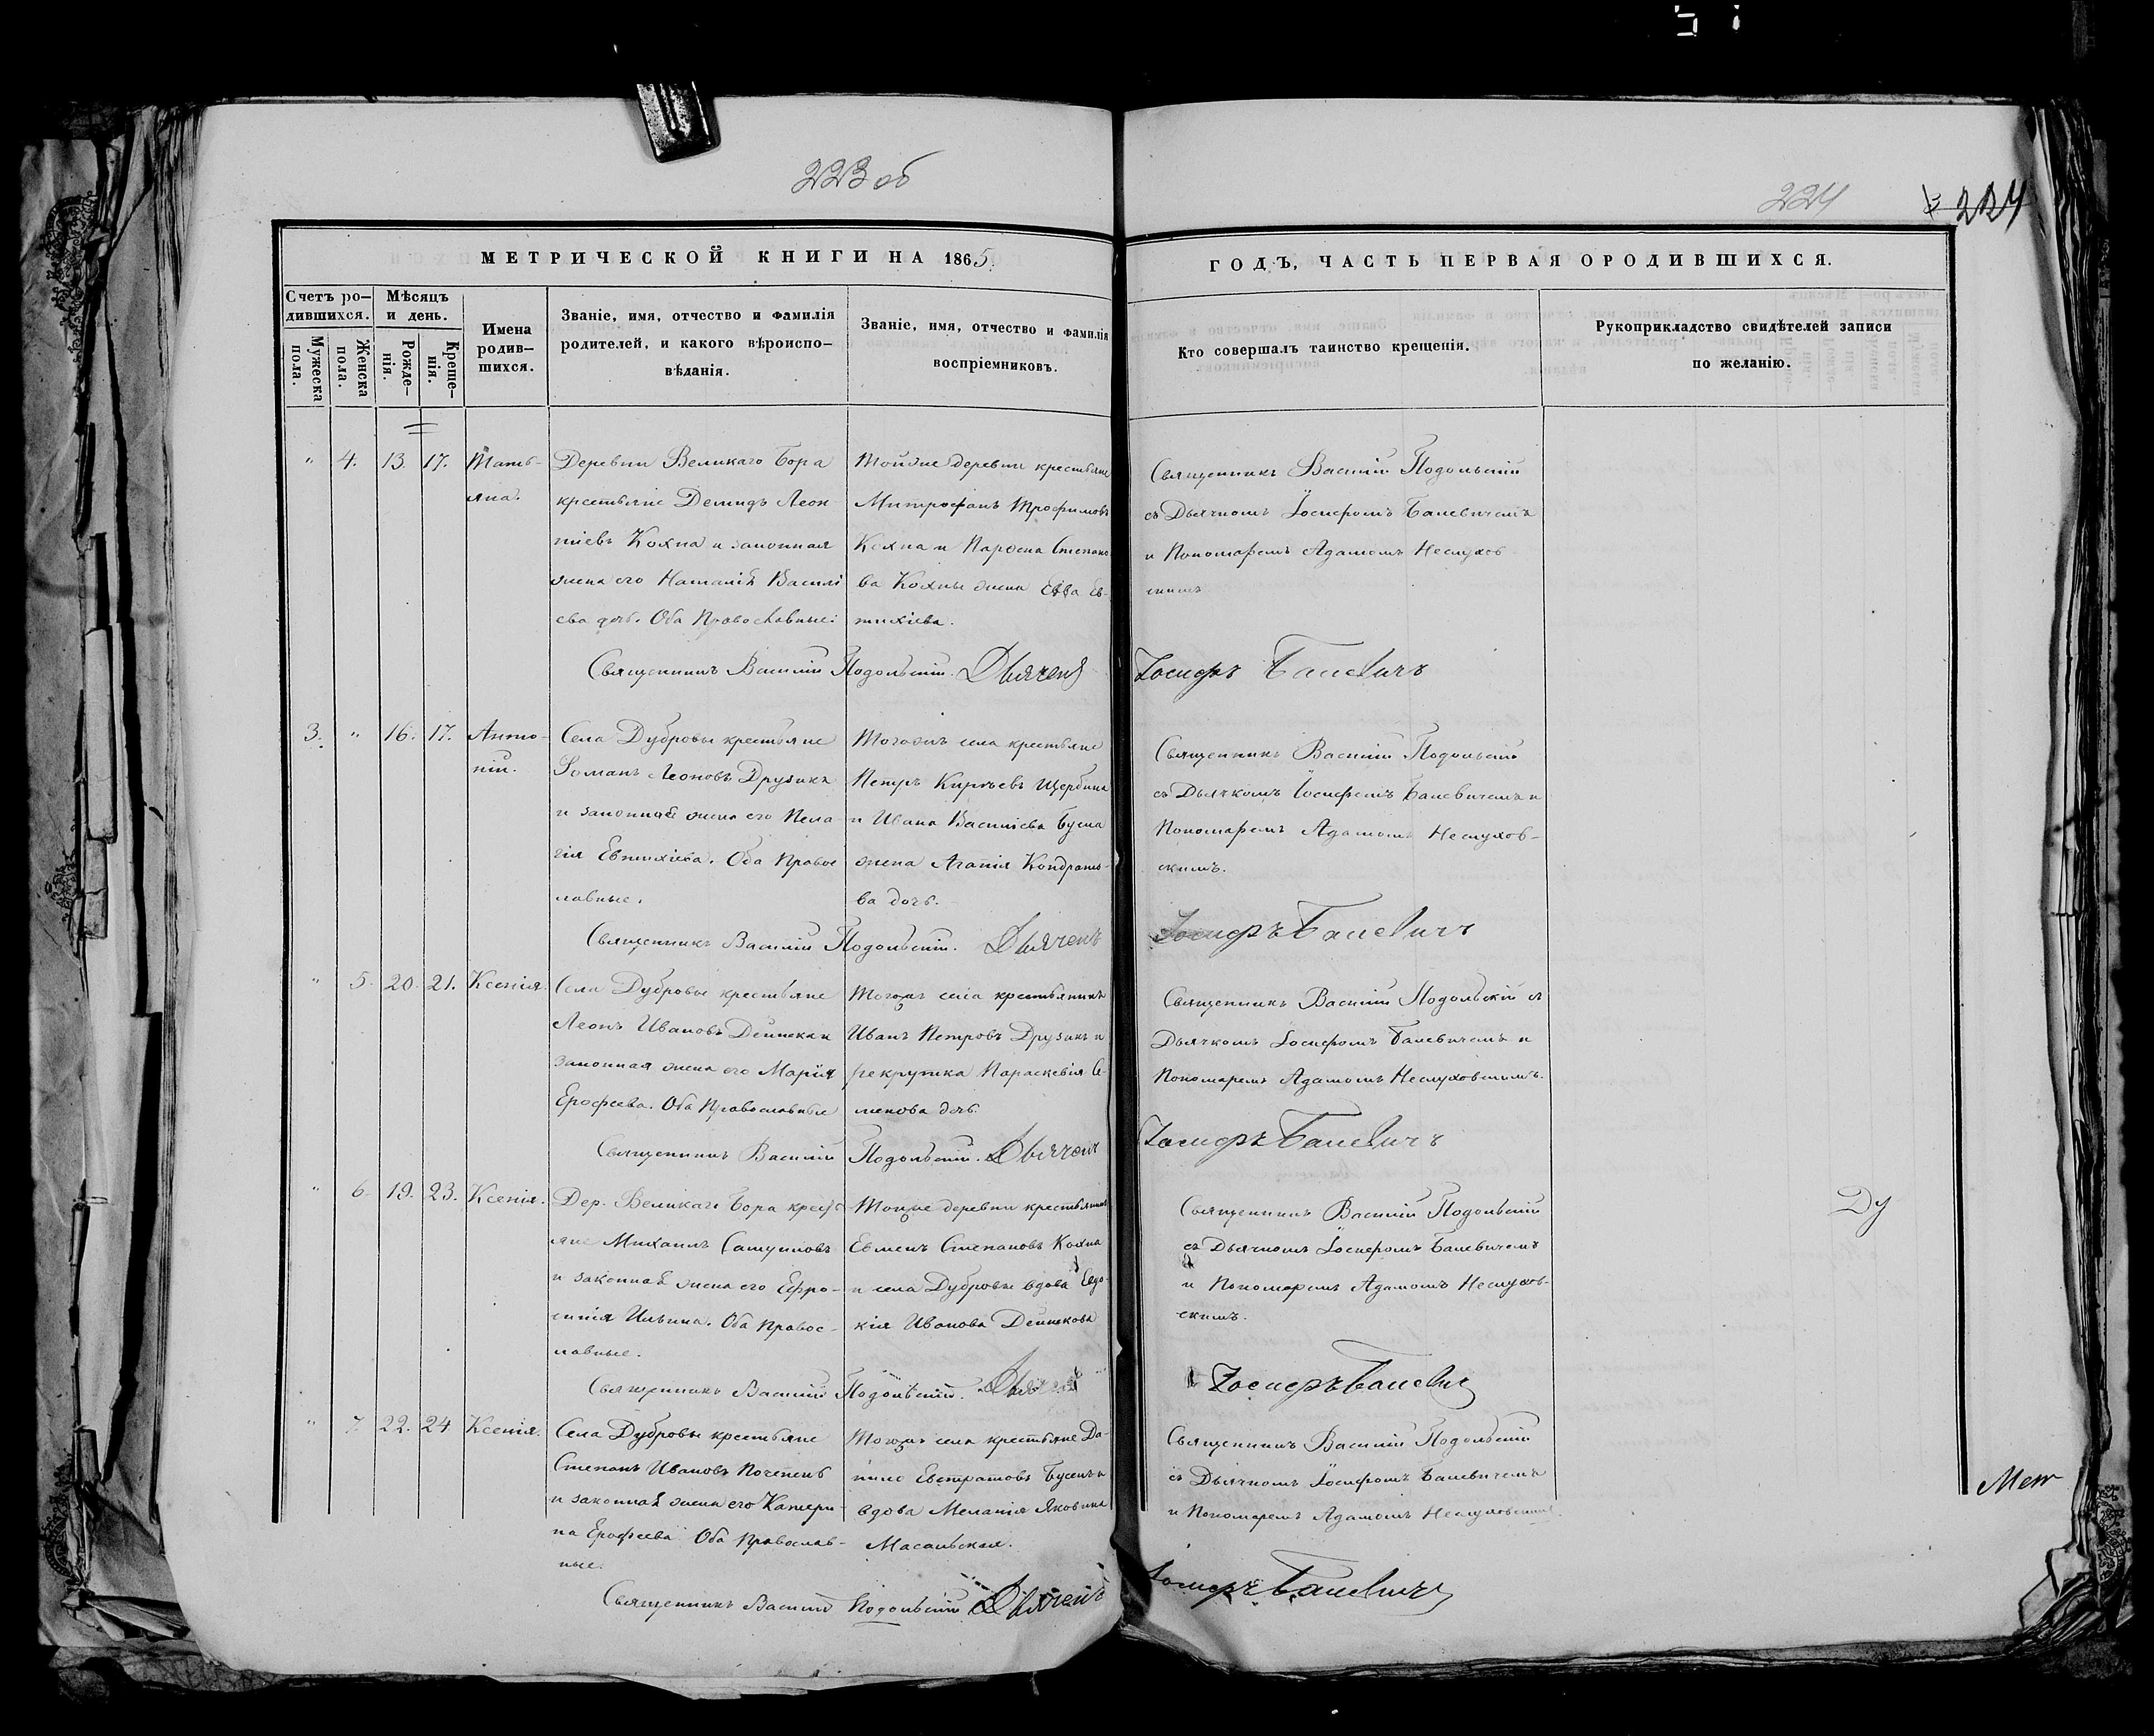 223 об
224
224
МЕТРИЧЕСКОЙ КНИГИ НА 1865.
ГОДЪ, ЧАСТЬ ПЕРВАЯ О РОДИВШИХСЯ.
Счетъ ро-
дившихся.
Мужеска
пола.
Женска
пола.
Мѣсяцъ
и день.
Рожде-
нія.
Креще-
нія.
Имена
родив-
шихся.
Званіе, имя, отчество и фамилія
родителей, и какого вѣроиспо-
вѣданія.
Званіе, имя, отчество и фамилія
воспріемниковъ.
Кто совершалъ таинство крещенія.
Рукоприкладство свидѣтелей записи
по желанію.
" 4. 13. 17. Тать-
яна.
Деревни Великаго Бора
крестьяне Демидъ Леон-
тіевъ Кохна и законная
жена его Наталія Василі
ева доч. Оба Православные.
Тойже деревни крестьяне
Митрофанъ Трофимовъ
Кохна и Парфена Степано
ва Кохны жена Евва Ев-
тихіева.
Священникъ Василій Подольскій
съ Дьячкомъ Іосифомъ Баневичемъ
и Пономаремъ Адамомъ Неслухов
скимъ
Священникъ Василій Подольскій. Дьячекъ Іосифъ Баневичъ
3. " 16. 17. Анто-
ній.
Села Дубровы крестьяне
Романъ Леоновъ Друзикъ
и законная жена его Пела
гія Евтихіева. Оба Правос
лавные.
Тогожъ села крестьяне
Петръ Кирѣевъ Щербина
и Ивана Василіева Бусла
жена Агапія Кондрать-
ва доч.
Священникъ Василій Подольскій
съ Дьячкомъ Іосифомъ Баневичемъ и
Пономаремъ Адамомъ Неслухов-
скимъ.
Священникъ Василій Подольскій. Дьячекъ Іосифъ Баневичъ
" 5. 20. 21. Ксенія.
Села Дубровы крестьяне
Леонъ Ивановъ Дейнека и
законная жена его Марія
Ерофеева. Оба Православные
Тогожъ села крестьянинъ
Иванъ Петровъ Друзикъ и
рекрутка Параскевія Се-
менова доч.
Священникъ Василій Подольскій съ
Дьячкомъ Іосифомъ Баневичемъ и
Пономаремъ Адамомъ Неслуховскимъ.
Священникъ Василій Подольскій. Дьячекъ Іосифъ Баневичъ
" 6. 19. 23. Ксенія.
Дер. Великаго Бора крест
яне Михаилъ
и законная жена его Ефро-
синія Ильина. Оба Правос-
лавные.
Тойже деревни крестьянинъ
Евменъ Степановъ Кохна
и села Дубровы вдова Евдо-
кія Иванова Дейнекова
Священникъ Василій Подольскій
съ Дьячкомъ Іосифомъ Баневичемъ
и Пономаремъ Адамомъ Неслухов-
скимъ.
Ду
Священникъ Василій Подольскій. Дьячекъ Іосифъ Баневичъ
" 7. 22. 24 Ксенія.
Села Дубровы крестьяне
Степанъ Ивановъ
и законная жена его Катери-
на Ерофеева. Оба Православ-
ные.
Тогожъ села крестьяне Да-
нило Евстратовъ и
вдова Меланія Яковина
Масальская.
Священникъ Василій Подольскій
съ Дьячкомъ Іосифомъ Баневичемъ
и Пономаремъ Адамомъ Неслуховскимъ.
Священникъ Василій Подольскій Дьячекъ Іосифъ Баневичъ